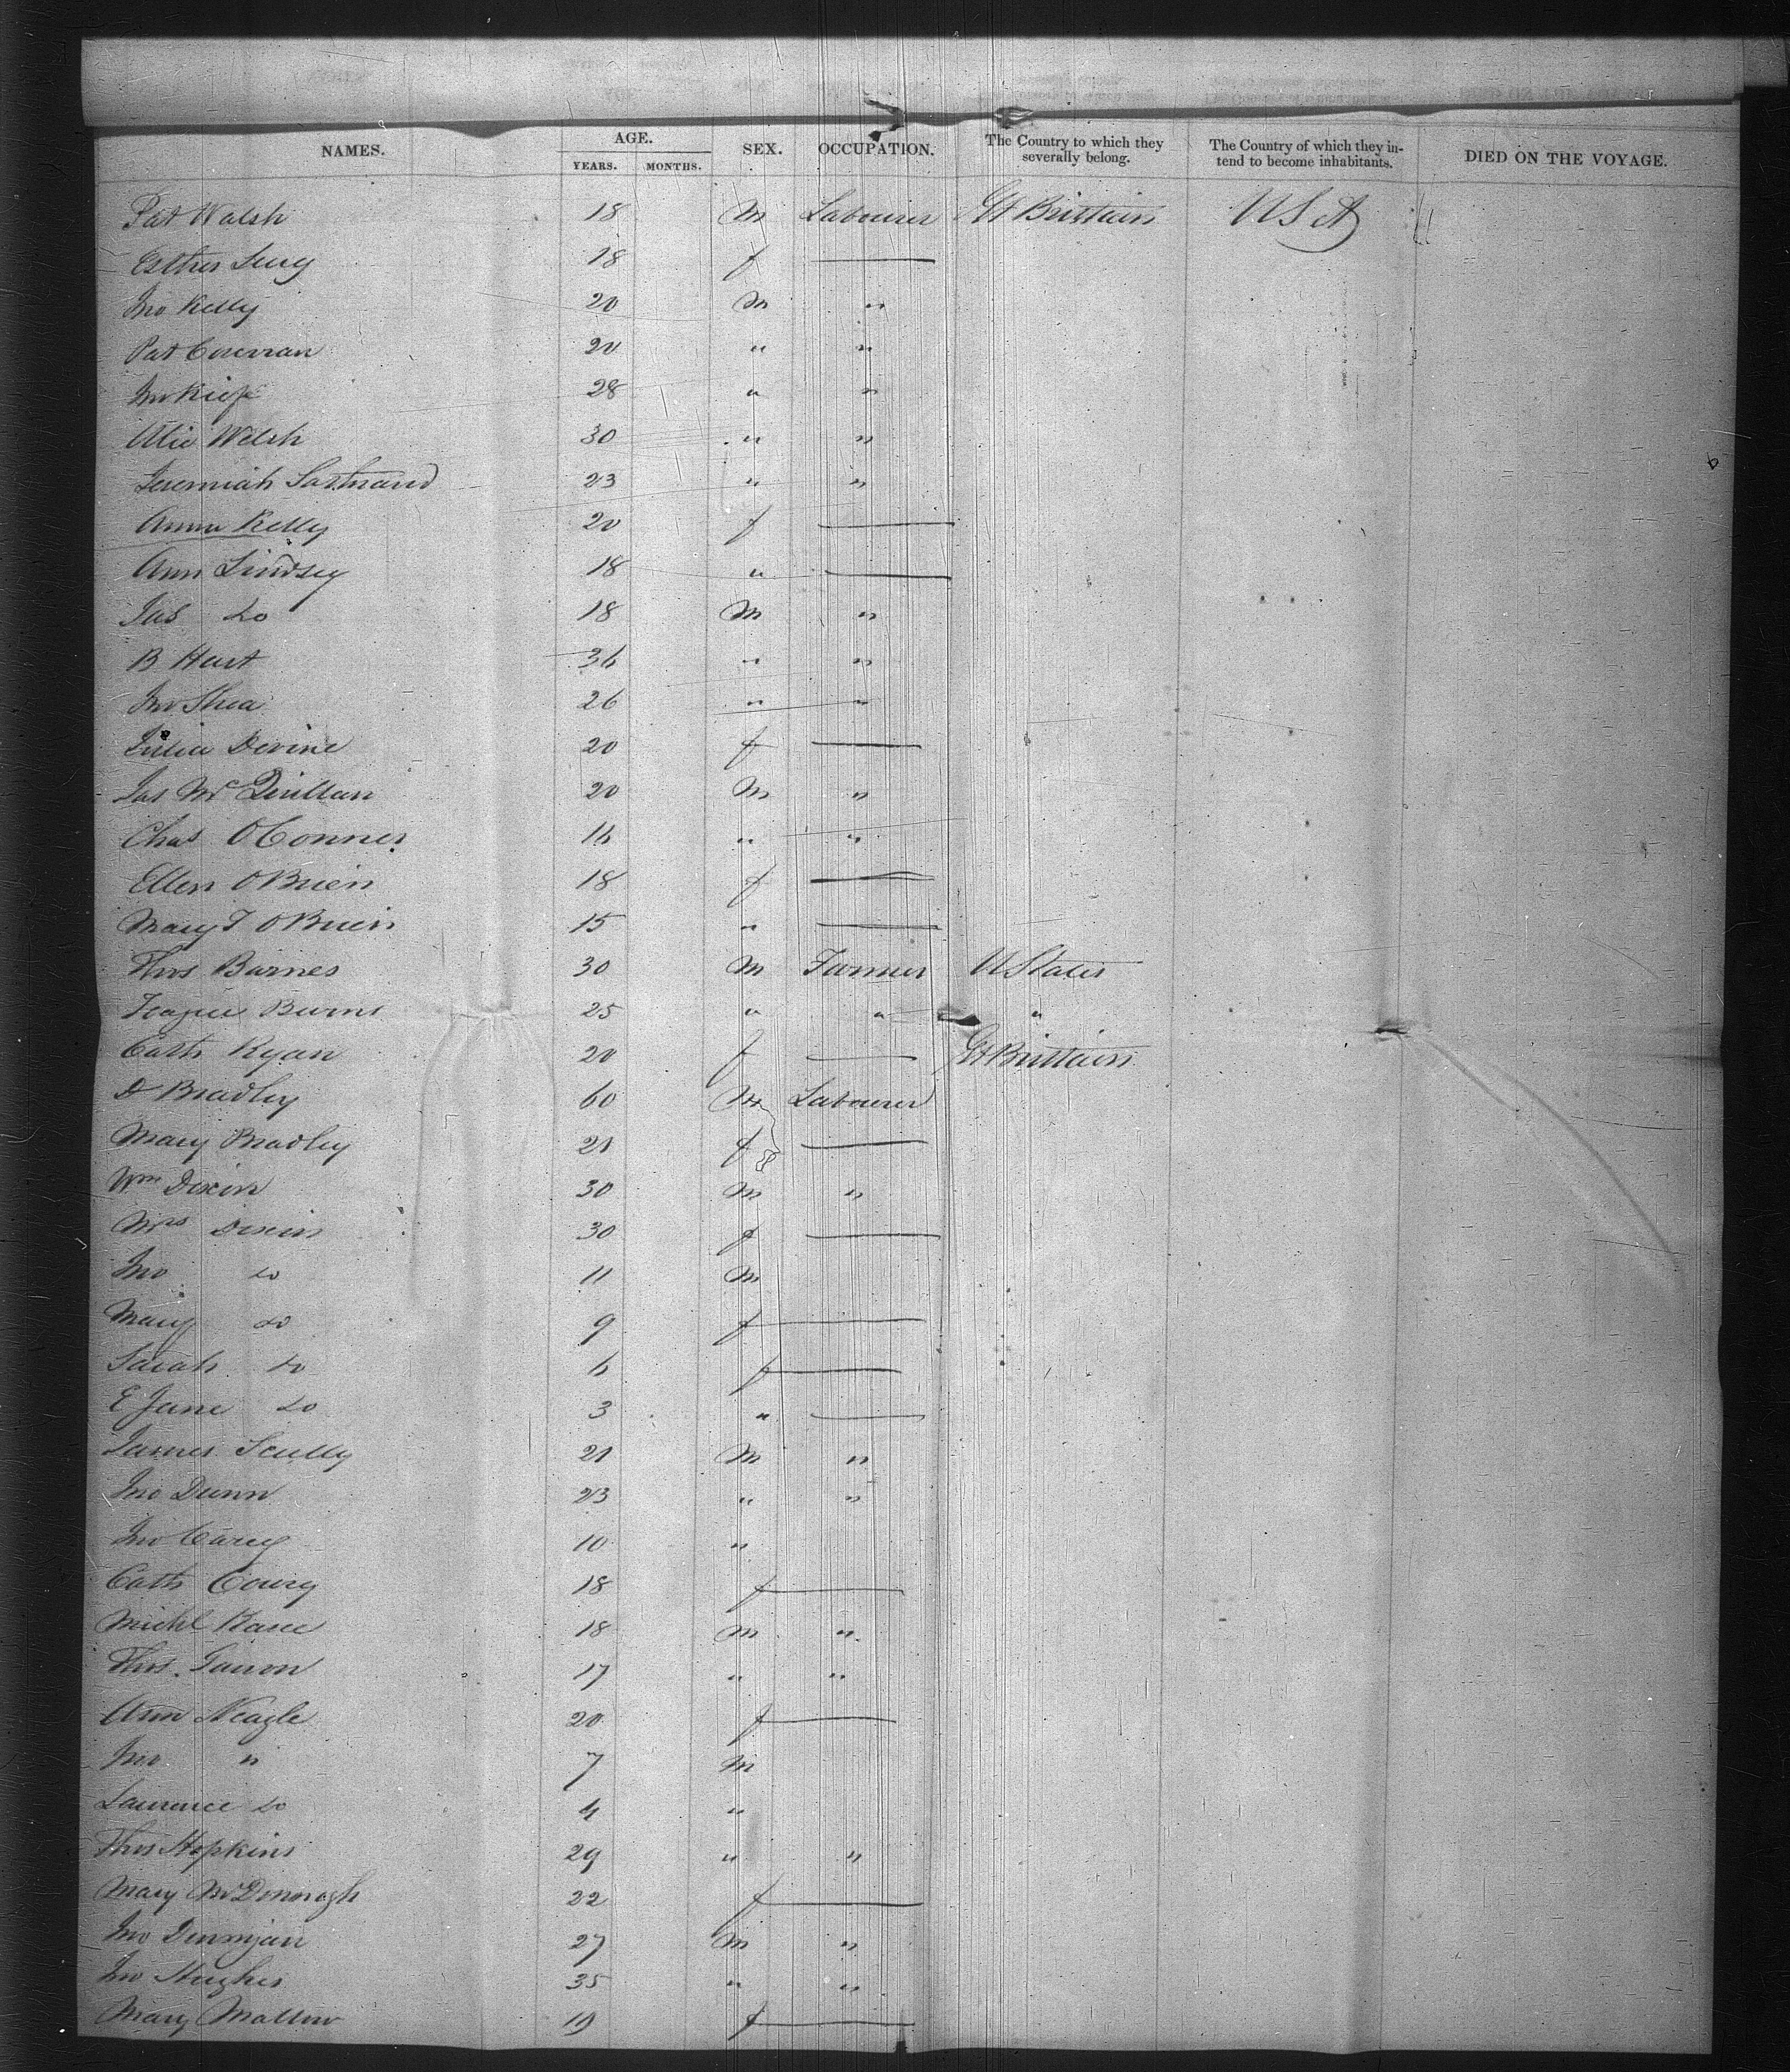 NAMES. AGE. YEARS. MONTHS. SEX. OCCUPATION. The Country to which they severally belong. The Country of which they intend to become inhabitants. DIED ON THE VOYAGE.
Pat Walsh 18 M Labourer Gt Brittain USA
Esther 18 f —
Jno Kelly 20 M "
Pat 20 " "
Jno 28 " "
Welsh 30 " "
Jeremiah 23 " "
Kelly 20 f —
Ann Lindsey 18 " —
Jas do 18 M "
B Hart 36 " "
Jno Shea 26 " "
Julia Devine 20 f —
Jas Mc Quillan 20 M "
Chas OConner 16 " "
Ellen OBrien 18 f —
Mary J OBrien 15 " —
Thos Burnes 30 M Farmer UStates
Burns 25 " " "
Cath Ryan 20 f — Gt Brittain
D Bradley 60 M Labourer
Mary Bradley 21 f —
Wm Dixon 30 M "
Mrs Dixon 30 f —
Jno do 11 M
Mary do 9 f —
Sarah do 6 f —
E Jane do 3 " —
James Scully 21 M "
Jno Dunn 23 " "
Jno Carey 10 "
Cath 18 f —
Michl Kane 18 M "
Thos. 17 " "
Ann Neagle 20 f —
Jno " 7 M
Laurence do 4 "
Thos Hopkins 29 " "
Mary McDonogh 22 f —
Jno 27 M "
Jno Hughes 35 " "
Mary 19 f —